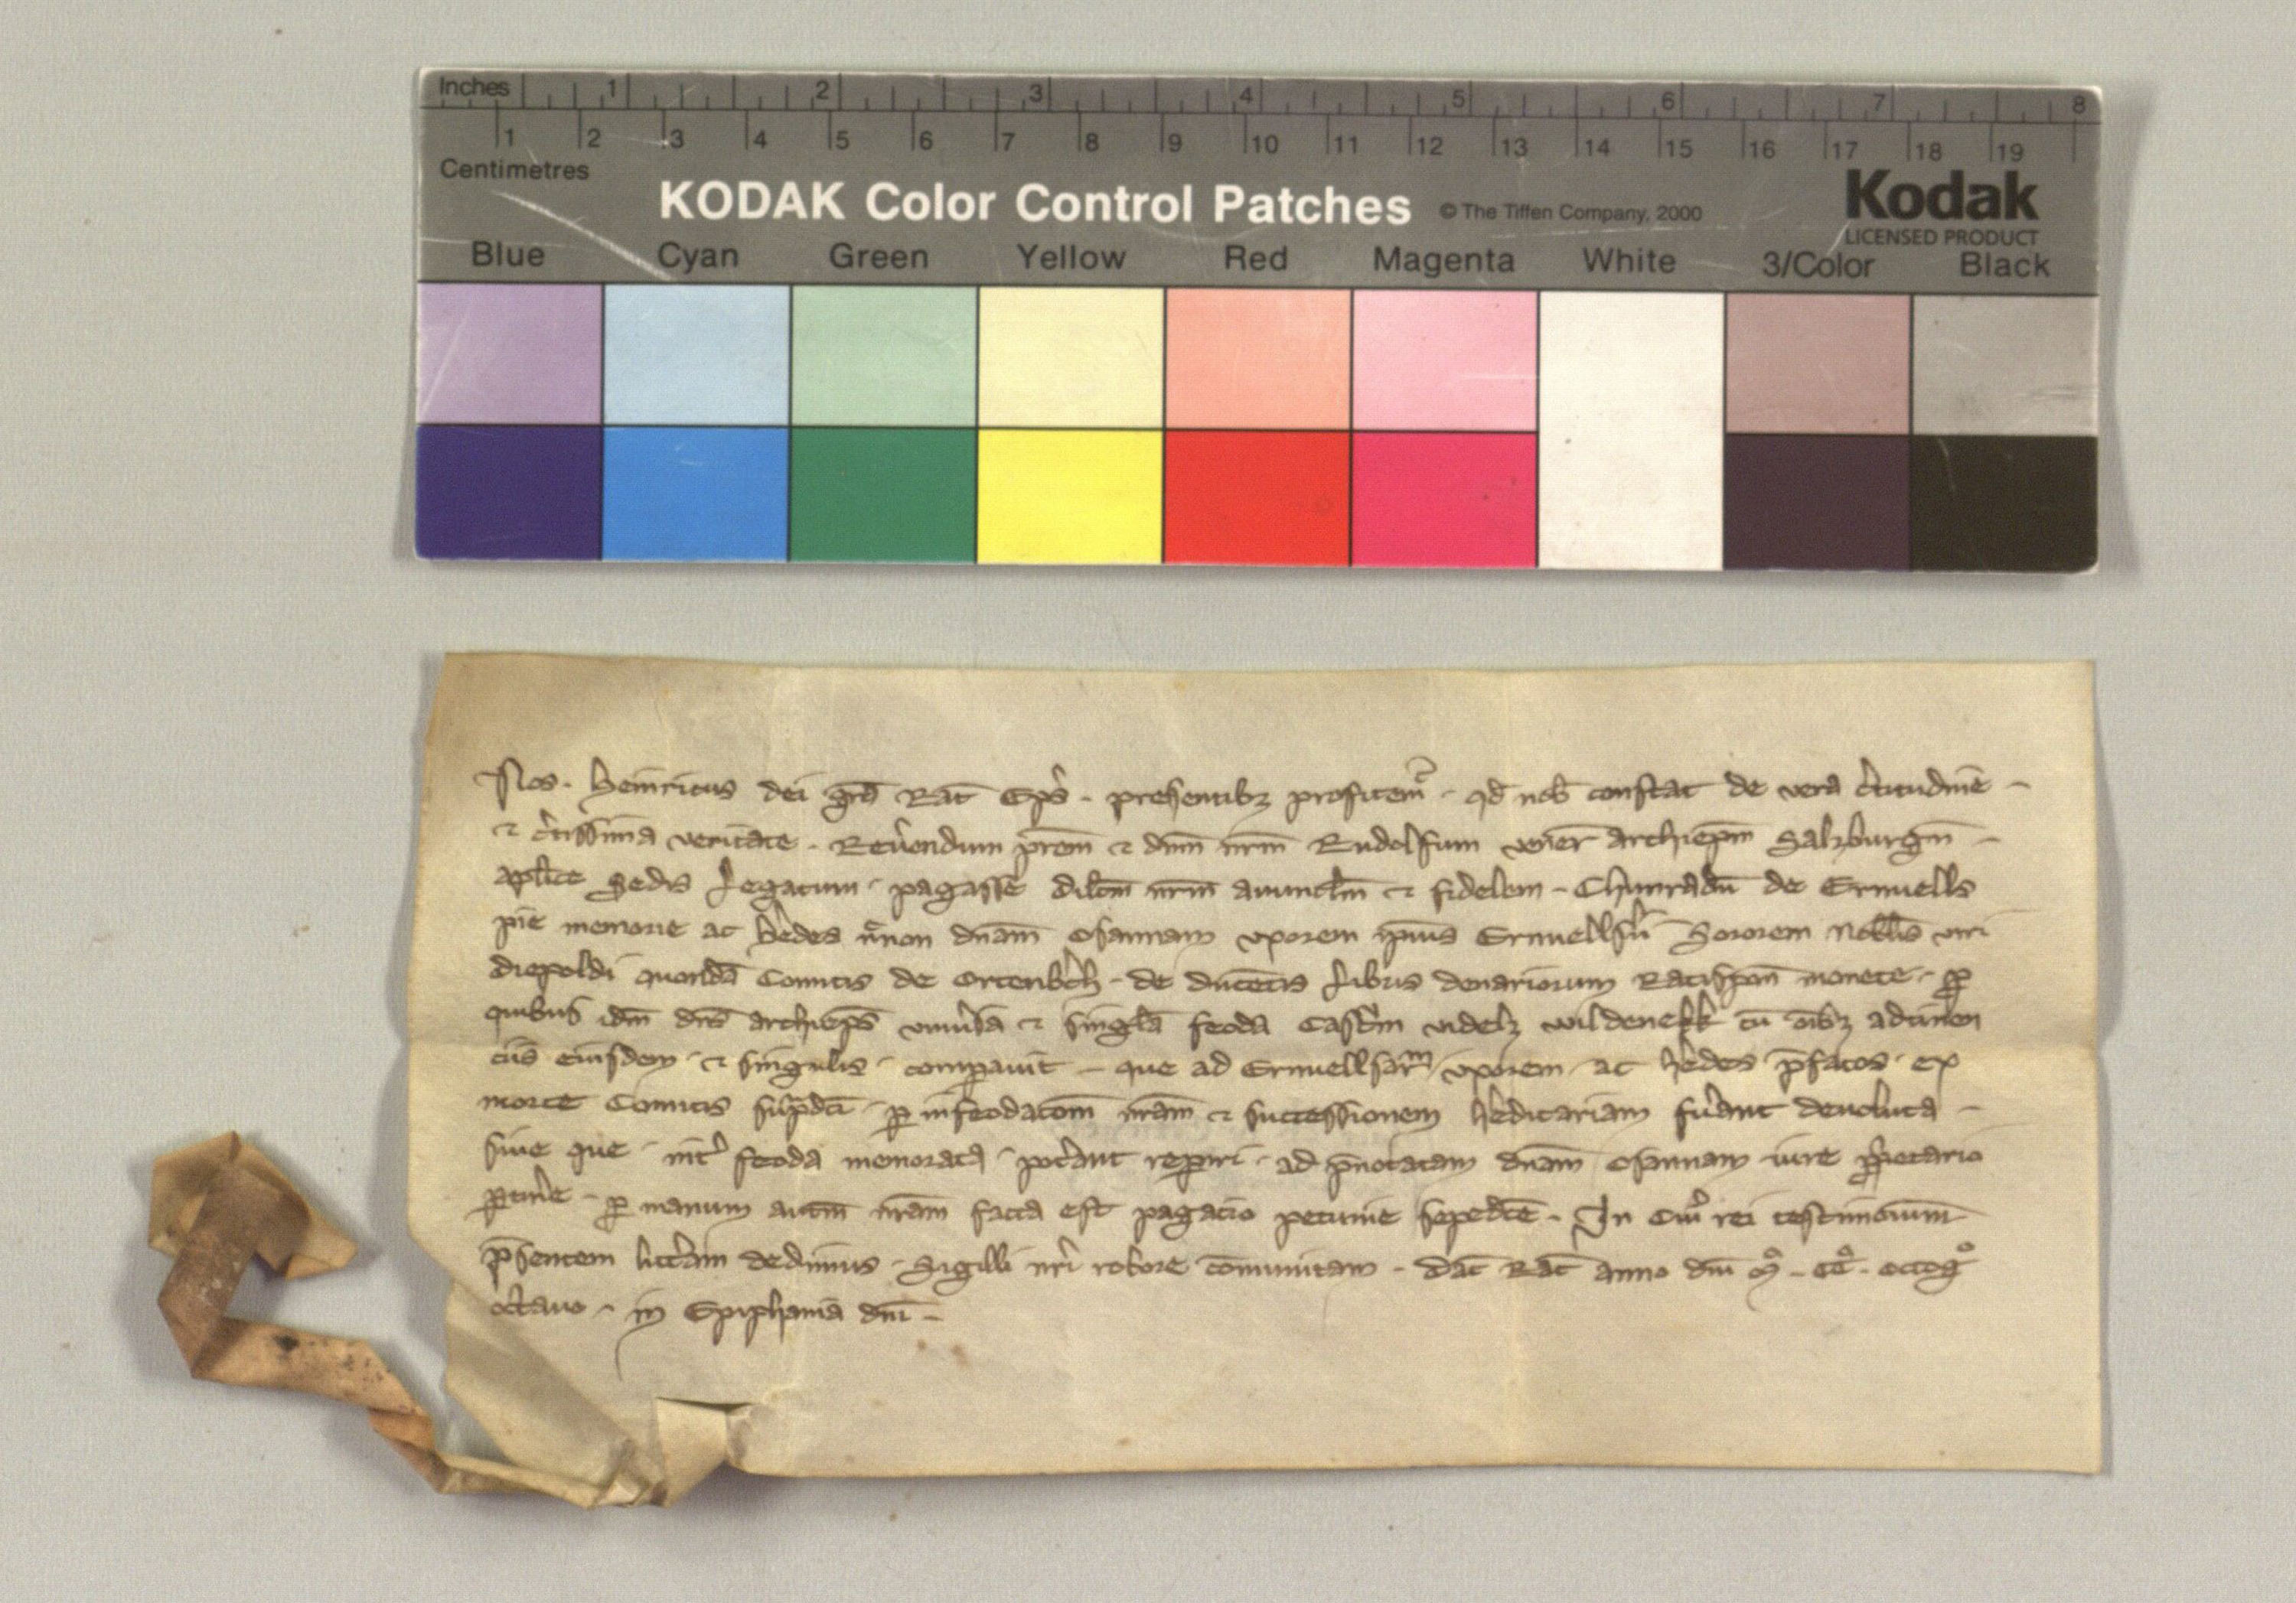 Inches 1 2 3 4 5 6 7 8
1 2 3 4 5 6 7 8 9 10 11 12 13 14 15 16 17 18 19
Centimetres
KODAK Color Control Patches © The Tiffen Company, 2000 Kodak
LICENSED PRODUCT
Blue Cyan Green Yellow Red Magenta White 3/Color Black
Nos. Heinricus dei gra᷃ Rat̄ Ep̄s. presentibꝫ profitem᷑. qd̄ nob̄ constat de vera c̄titudine᷃ –
⁊ c̄tissima veritate. Rev̄endum prēm ⁊ dn̄m nr̄m Rudolfum ven̄er archiep̄m Salzburgn̄ –
apl̄ice Sedis Legatum. pagasse dilc̄m nr̄m auuncl̄m ⁊ fidelem – Chunradū de Ernuells
pie memorie ac h̄edes n̄non dn̄am Osannam vxorem ip̄ius Ernuells Sororem Nobil̄is viri
diepoldi quondā Comitis de Ortenb̄ch – de ducētis Libris denariorum Ratispon̄ monete. ꝓ
quibus idm̄ dn̄s archiep̄s vniu̓sa ⁊ singl̄a feoda Castr̄m videlꝫ wildenekk cū om̄ibꝫ adtinen
ciis eiusdem. ⁊ singulis. comparuit – que ad vxorem ac h̄edes p̄fatos. ex
morte Comitis sup̄dc̄i. ꝑ infeodatoēm nr̄am ⁊ successionem h̄editariam fūant deuoluta –
siue que. int̓ feoda memorata. pot̓ant reperiri. ad p̄notatam dn̄am Osannam iure ꝓp̓etario
ꝑtin̄e – ꝑ manum autm̄ nr̄am facta est pagatio pecunie sepedc̄e. In Cui᷒ rei testimonium
p̄sentem litt̓am dedimus. Sigilli nr̄i robore cōmunitam. Dat̄ Rat̄ anno dn̄i mͦ. ccͦ. octogͦ
octauo. in Epiphania dn̄i –